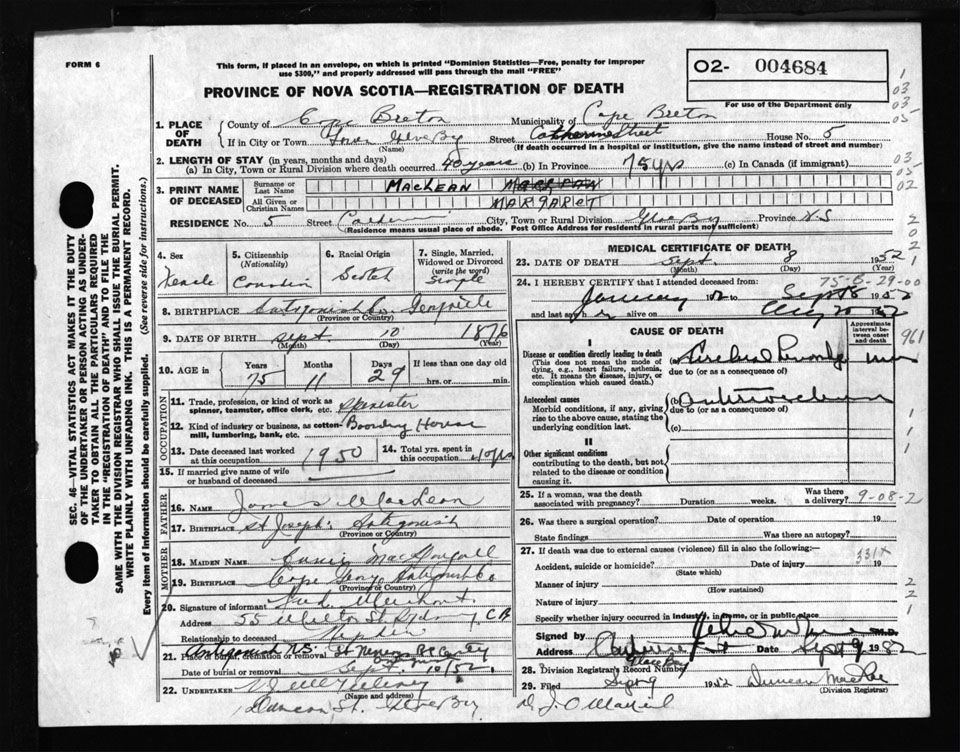 FORM 6
This form, if placed in an envelope, on which is printed "Dominion Statistics—Free, penalty for improper
use $300," and properly addressed will pass through the mail "FREE"
02- 004684
For use of the Department only
PROVINCE OF NOVA SCOTIA—REGISTRATION OF DEATH
1. PLACE OF DEATH
County of Cape Breton Municipality of Cape Breton
If in City or Town Glace Bay Street Catherine Street House No. 5
(Name) (If death occurred in a hospital or institution, give name instead of street and number)
2. LENGTH OF STAY (in years, months and days)
(a) In City, Town or Rural Division where death occurred 40 years (b) In Province 75 yrs (c) In Canada (if immigrant)
3. PRINT NAME OF DECEASED
Surname or Last Name MACLEAN
All Given or Christian Names MARGARET
RESIDENCE No. 5 Street City, Town or Rural Division Glace Bay Province N.S
(Residence means usual place of abode. Post Office Address for residents in rural parts not sufficient)
4. Sex Female
5. Citizenship (Nationality)
6. Racial Origin Scotch
7. Single, Married, Widowed or Divorced (write the word) Single
8. BIRTHPLACE Antigonish Co
(Province or Country)
9. DATE OF BIRTH Sept. 10 1876
(Month) (Day) (Year)
10. AGE in Years 75 Months 11 Days 29 If less than one day old
hrs. or min.
OCCUPATION
11. Trade, profession, or kind of work as spinner, teamster, office clerk, etc. Spinster
12. Kind of industry or business, as cotton-mill, lumbering, bank, etc. Boarding House
13. Date deceased last worked at this occupation 1950
14. Total yrs. spent in this occupation 40 yrs
15. If married give name of wife or husband of deceased
FATHER
16. Name James MacLean
17. BIRTHPLACE St Josephs Antigonish
(Province or Country)
MOTHER
18. MAIDEN NAME MacDougall
19. BIRTHPLACE Cape George Antigonish Co
(Province or Country)
20. Signature of informant
Address 55 St
Relationship to deceased
21. Place of burial, cremation or removal Antigonish N.S.
Date of burial or removal Sept 10/52
22. UNDERTAKER
(Name and address)
St. Glace Bay
MEDICAL CERTIFICATE OF DEATH
23. DATE OF DEATH Sept. 8 1952
(Month) (Day) (Year)
24. I HEREBY CERTIFY that I attended deceased from:
75-B-29-00
January to Sept 8 1952
and last saw h alive on Aug 20 1952
CAUSE OF DEATH
Approximate interval between onset and death
I
Disease or condition directly leading to death
(This does not mean the mode of dying, e.g., heart failure, asthenia, etc. It means the disease, injury, or complication which caused death.)
due to (or as a consequence of)
Antecedent causes
Morbid conditions, if any, giving rise to the above cause, stating the underlying condition last.
(b)
due to (or as a consequence of)
(c)
II
Other significant conditions
contributing to the death, but not related to the disease or condition causing it.
25. If a woman, was the death associated with pregnancy? Duration weeks. Was there a delivery?
9-08-2
26. Was there a surgical operation? Date of operation 19
State findings Was there an autopsy?
27. If death was due to external causes (violence) fill in also the following:—
331X
Accident, suicide or homicide? Date of injury 19
(State which)
Manner of injury
(How sustained)
Nature of injury
Specify whether injury occurred in industry, in home, or in public place
Signed by M.D.
Address Catherine St Date Sept 9 1952
Glace Bay
28. Division Registrar's Record Number
29. Filed Sept 9 1952 Duncan
(Division Registrar)
SEC. 46—VITAL STATISTICS ACT MAKES IT THE DUTY
OF THE UNDERTAKER OR PERSON ACTING AS UNDER-
TAKER TO OBTAIN ALL THE PARTICULARS REQUIRED
IN THE "REGISTRATION OF DEATH" AND TO FILE THE
SAME WITH THE DIVISION REGISTRAR WHO SHALL ISSUE THE BURIAL PERMIT.
WRITE PLAINLY WITH UNFADING INK. THIS IS A PERMANENT RECORD.
Every item of information should be carefully supplied. (See reverse side for instructions.)
961